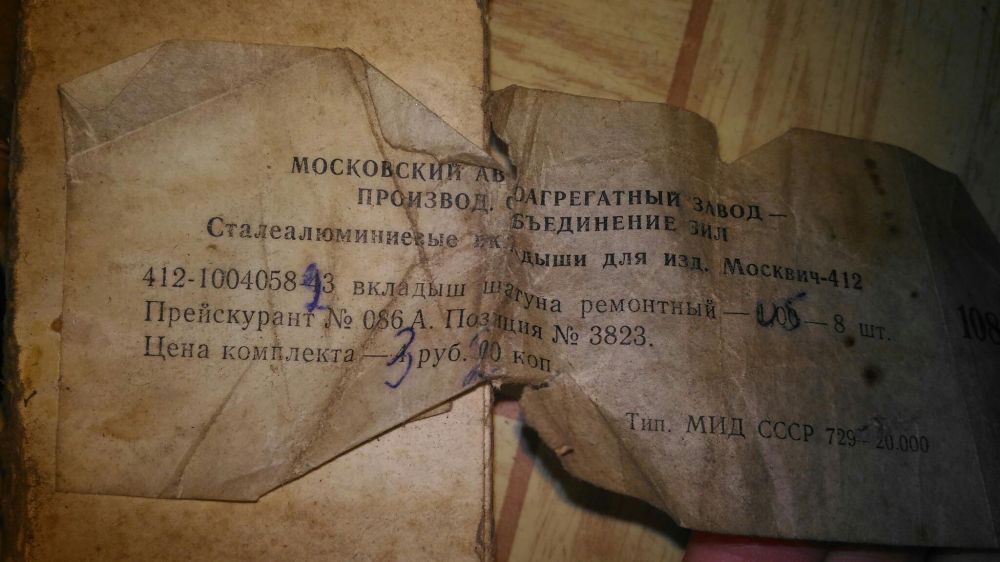 МОСКОВСКИЙ АВ ОАГРЕГАТНЫЙ ЗАВОД —
ПРОИЗВОД. ОБЪЕДИНЕНИЕ ЗИЛ
Сталеалюминиевые вкладыши для изд. Москвич-412
412-1004058- 3 вкладыш шатуна ремонтный — — 8 шт.
108
Прейскурант № 086 А. Позиция № 3823.
Цена комплекта — 3 руб. 20 коп
Тип. МИД СССР 729—20.000